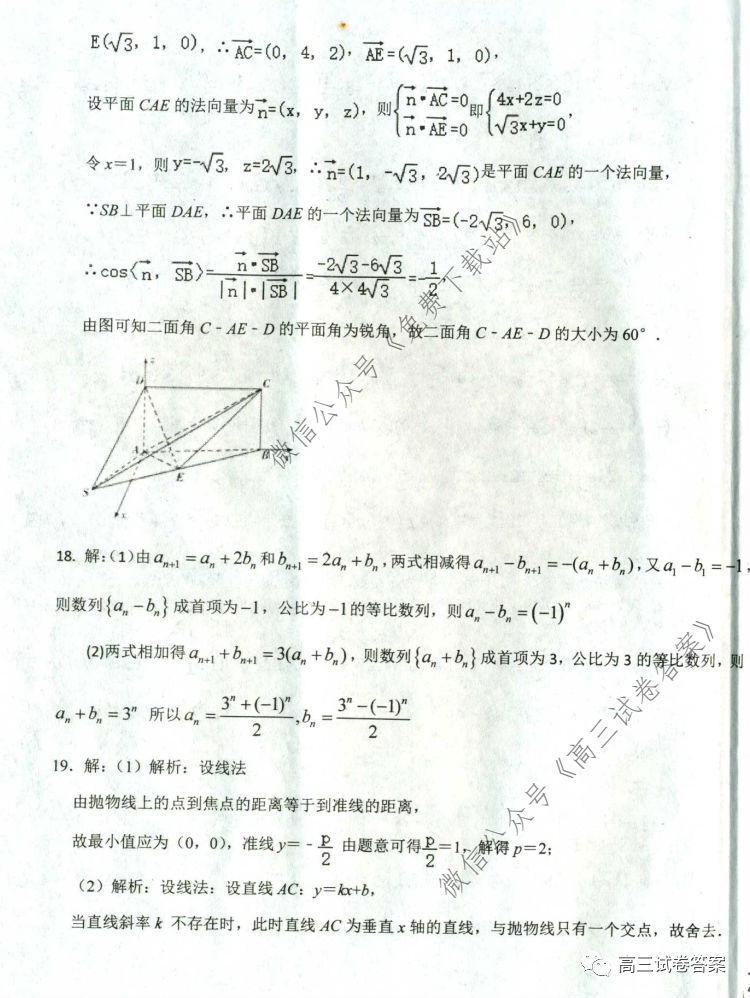 E(√3, 1, 0), ∴AC=(0, 4, 2), AE=(√3, 1, 0),
设平面 CAE 的法向量为n=(x, y, z), 则{n·AC=0 n·AE=0 即{4x+2z=0 √3x+y=0,
令 x=1, 则 y=-√3, z=2√3, ∴n=(1, -√3, 2√3)是平面 CAE 的一个法向量,
∵SB⊥平面 DAE, ∴平面 DAE 的一个法向量为SB=(-2√3, 6, 0),
∴cos<n, SB>=n·SB/|n|·|SB|=-2√3-6√3/4×4√3=-1/2,
由图可知二面角 C-AE-D 的平面角为锐角, 故二面角 C-AE-D 的大小为 60°.
z
D
C
A
B
E
S
x
18. 解:(1)由 aₙ₊₁=aₙ+2bₙ 和 bₙ₊₁=2aₙ+bₙ, 两式相减得 aₙ₊₁-bₙ₊₁=-(aₙ+bₙ), 又 a₁-b₁=-1,
则数列{aₙ-bₙ}成首项为-1, 公比为-1的等比数列, 则 aₙ-bₙ=(-1)ⁿ
(2)两式相加得 aₙ₊₁+bₙ₊₁=3(aₙ+bₙ), 则数列{aₙ+bₙ}成首项为 3, 公比为 3 的等比数列, 则
aₙ+bₙ=3ⁿ 所以 aₙ=3ⁿ+(-1)ⁿ/2, bₙ=3ⁿ-(-1)ⁿ/2
19. 解:(1)解析: 设线法
由抛物线上的点到焦点的距离等于到准线的距离,
故最小值应为(0, 0), 准线 y=-p/2 由题意可得p/2=1, 解得 p=2;
(2)解析: 设线法: 设直线 AC: y=kx+b,
当直线斜率 k 不存在时, 此时直线 AC 为垂直 x 轴的直线, 与抛物线只有一个交点, 故舍去.
微信公众号《免费下载站》
微信公众号《高三试卷答案》
高三试卷答案